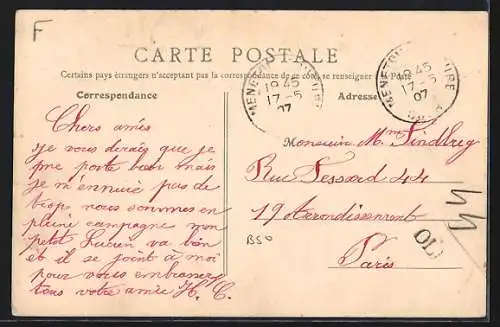 F
CARTE POSTALE
Certains pays étrangers n'acceptant pas la correspondance de ce côté se renseigner à la Poste
Correspondance
Adresse
1945
17-5
07
1945
17-5
07
Chers amies
je vous dirais que je
me porte bien mais
je m'ennuie pas de
trop nous sommes en
pleine campagne mon
petit Lucien va bien
et il se joint à moi
pour vous embrasser
tous votre amie H. C.
Monsieur Mm
Rue Fessard 44
19 Arrondissement
Paris
BS0
OL